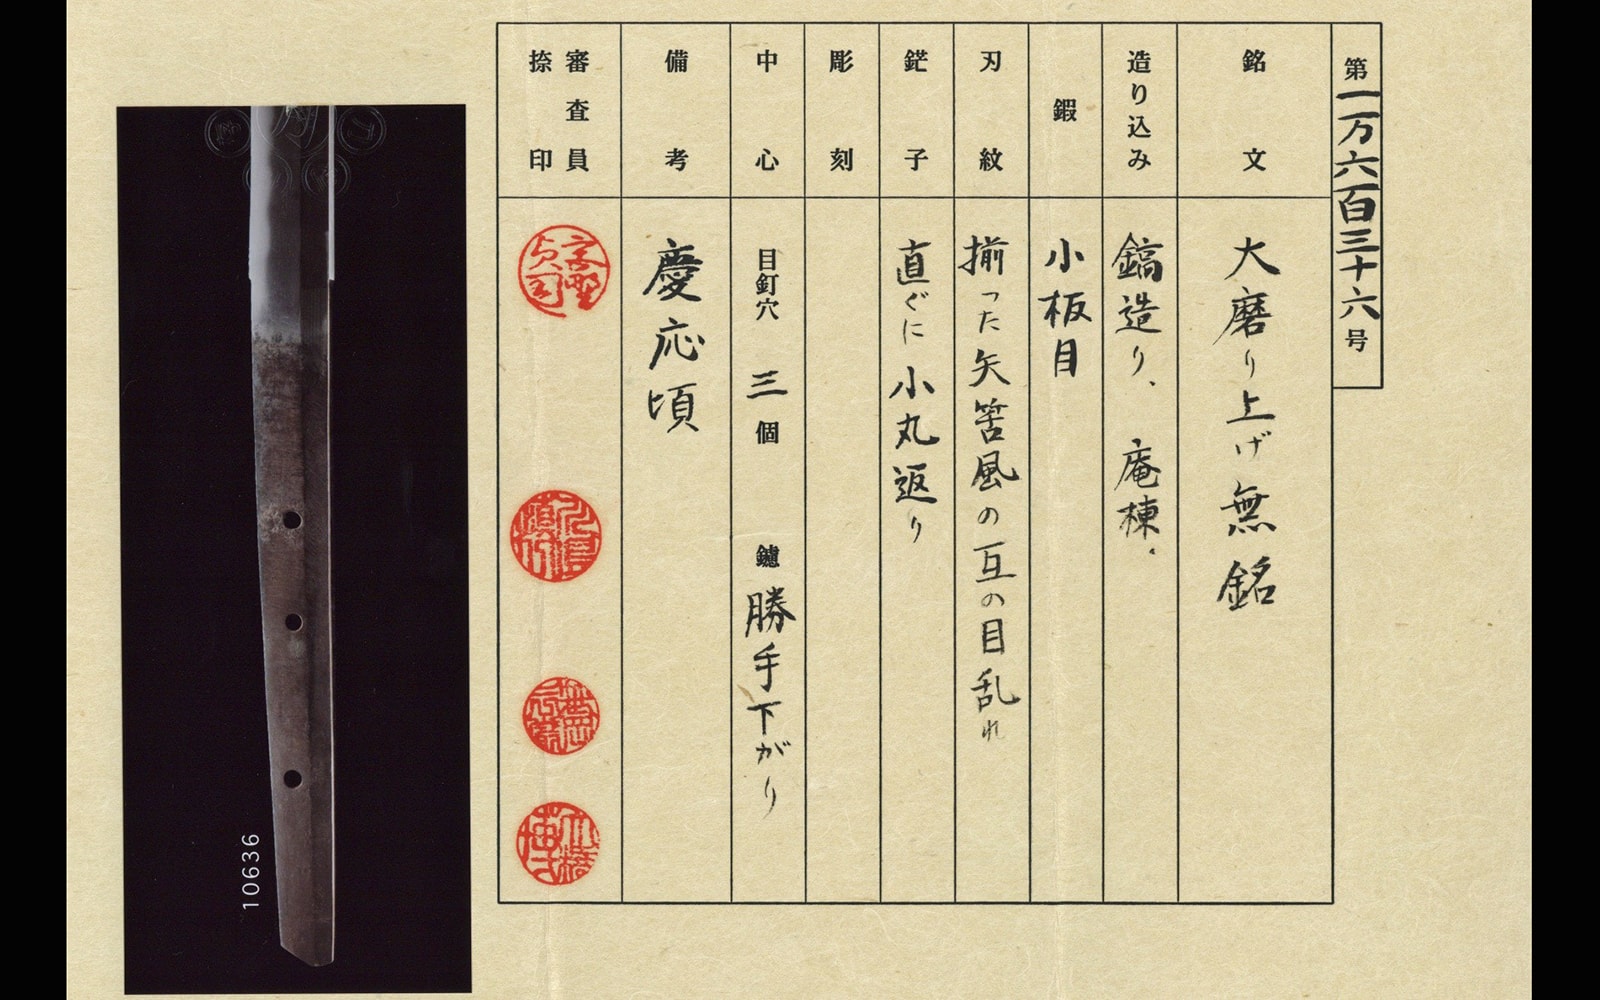 第一万六百三十六号
銘文
大磨り上げ無銘
造り込み
鎬造り、庵棟.
鍜
小板目
刃紋
揃った矢筈風の互の目乱れ
鋩子
直ぐに小丸返り
彫刻
中心
目釘穴 三個 鑢 勝手下がり
備考
慶応頃
審査員
捺印
10636